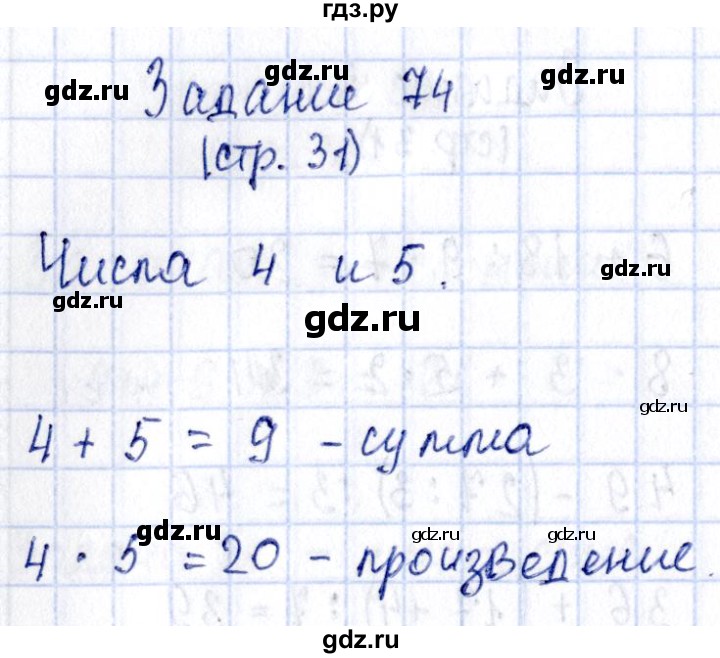 гдз.ру
Задание 74
gdz.ru
gdz.ru
gdz.ru
(стр. 31)
Числа 4 и 5.
gdz.ru
gdz.ru
gdz.ru
gdz.ru
4 + 5 = 9 - сумма
4 · 5 = 20 - произведение.
gdz.ru
gdz.ru
gdz.ru
gdz.ru